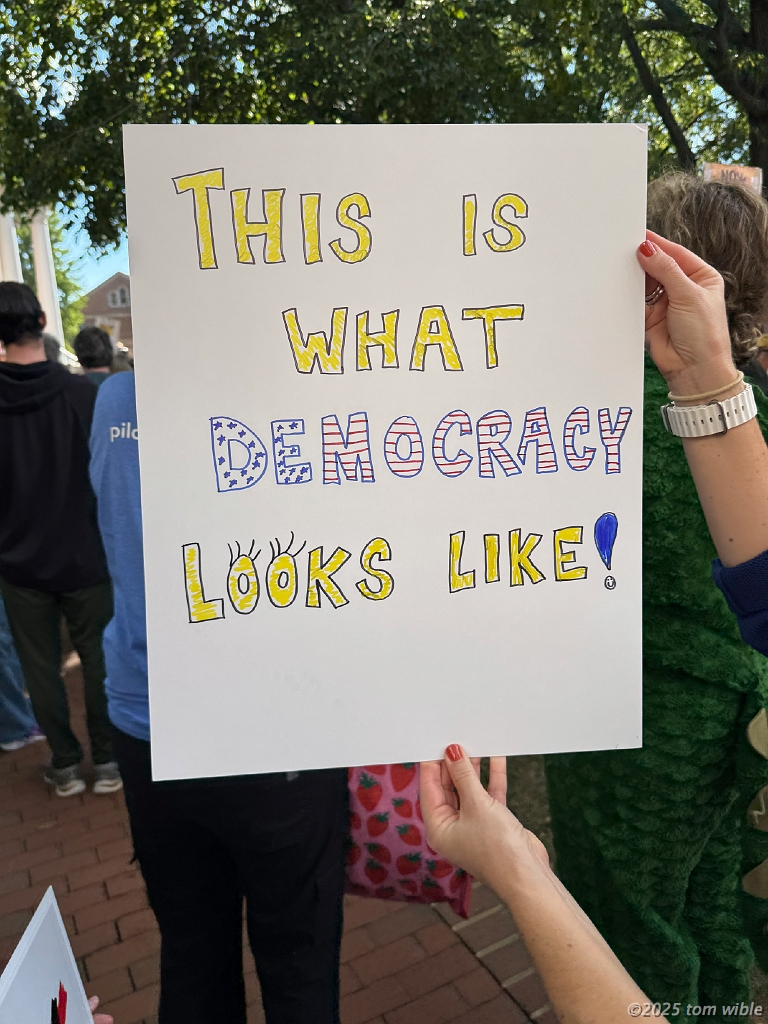 THIS IS
WHAT
DEMOCRACY
LOOKS LIKE!
NOW
©2025 tom wible